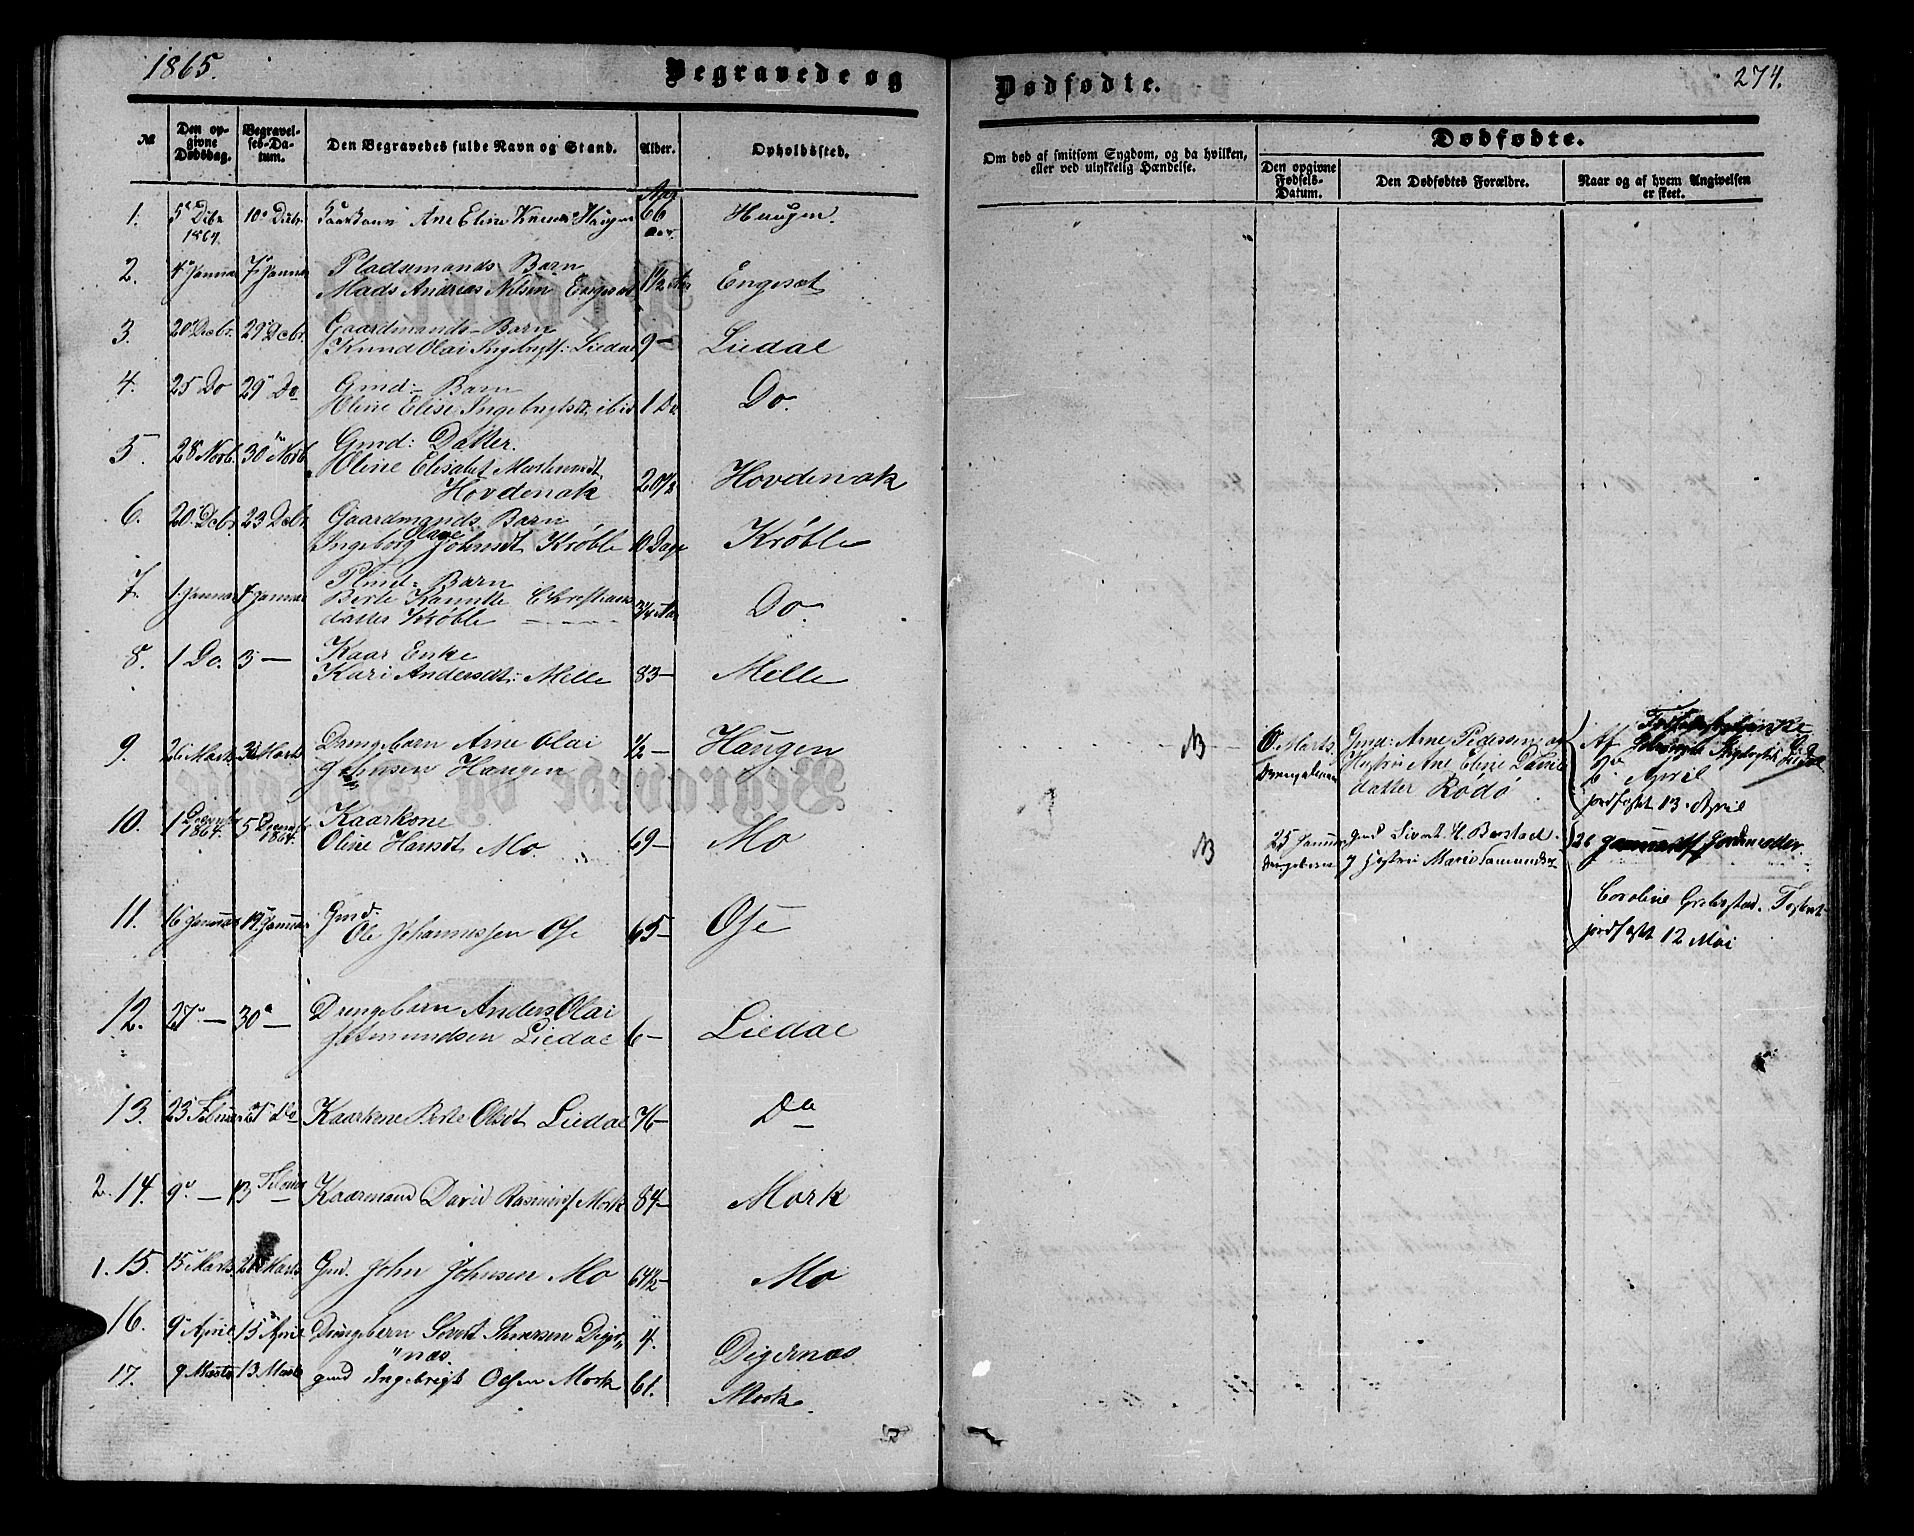 1865.
Begravede og
Dødfødte.
274.
№
Den opgivne Dødsdag.
Begravelses-Datum.
Den Begravedes fulde Navn og Stand.
Alder.
Opholdssted.
Om død af smitsom Sygdom, og da hvilken, eller ved ulykkelig Hændelse.
Dødfødte.
Den opgivne Fødsels-Datum.
Den Dødfødtes Forældre.
Naar og af hvem Angivelsen er skeet.
1. 5 Decbr 1864. 10 Decbr Ane Eline Haugen 66 Aar. Haugen.
2. 4 Januar 7 Januar Pladsemands Barn
Mads Andreas Nilsen Engeset 1½ Aar Engeset
3. 20 Decbr. 29 Decbr. Gaardmands-Barn
Knud Olai Ingebrigts: Liedal 9 — Liedal
4. 25 Do 29 Do Gmd:- Barn
Oline Elise Ingebrigtsdt: ibid 1 Do Do.
5. 28 Novb. 30 Novb. Gmd: Datter.
Oline Elisabet Mortensdt.
Hovdenak 20½ Hovdenak
6. 20 Decbr. 23 Decbr. Gaardmands Barn
Ingeborg Olave Johnsdt Krøble 10 Dage Krøble
7. 1 Januar 7 Januar Plmd: Barn
Berte Christians
datter Krøble 3/4 Aar Do.
8. 1 Do. 3 — Kaar Enke
Kari Andersdt: Melle 83 — Melle
9. 26 Marts Marts Drengebarn Arne Olai
Jensen Haugen ½ — Haugen
10. 1 Decembr 1864. 5 Decembr 1864. Kaarkone
Oline Hansdt Mo. 69 — Mo
11. 16 Januar 19 Januar Gmd:
Ole Johannessen Ose 65 — Ose
12. 27 — 30 — Drengebarn Anders Olai
Asmundsen Liedal 6 — Liedal
13. 23 Februar Do Kaarkone Berte Olsdt Liedal 76 — Do
2. 14. 9 — 13 Februar Kaarmand David Rasmus. Mork 84 — Mork
1. 15. 15 Marts Marts Gmd. John Johnsen Mo 64½ — Mo
16. 9 April 15 April Drengebarn Sivert Digernæs 4. Digernæs
17. 9 Marts 13 Marts gmd Ingebrigt Olsen Mork 61. Mork.
NB 6 Marts
Drengebarn
Gmd: Arne Pedersen og
Hustru Ane Eline Daniels
datter Rødø.
Af
6 April
jordfæstet 13 April
NB 25 Januar
Drengebarn
Gmd Sivert H. Barstad
og Hustru Marie
26 Januar af Jordemoder
Caroline Grebstad.
jordfæstet 12 Mai